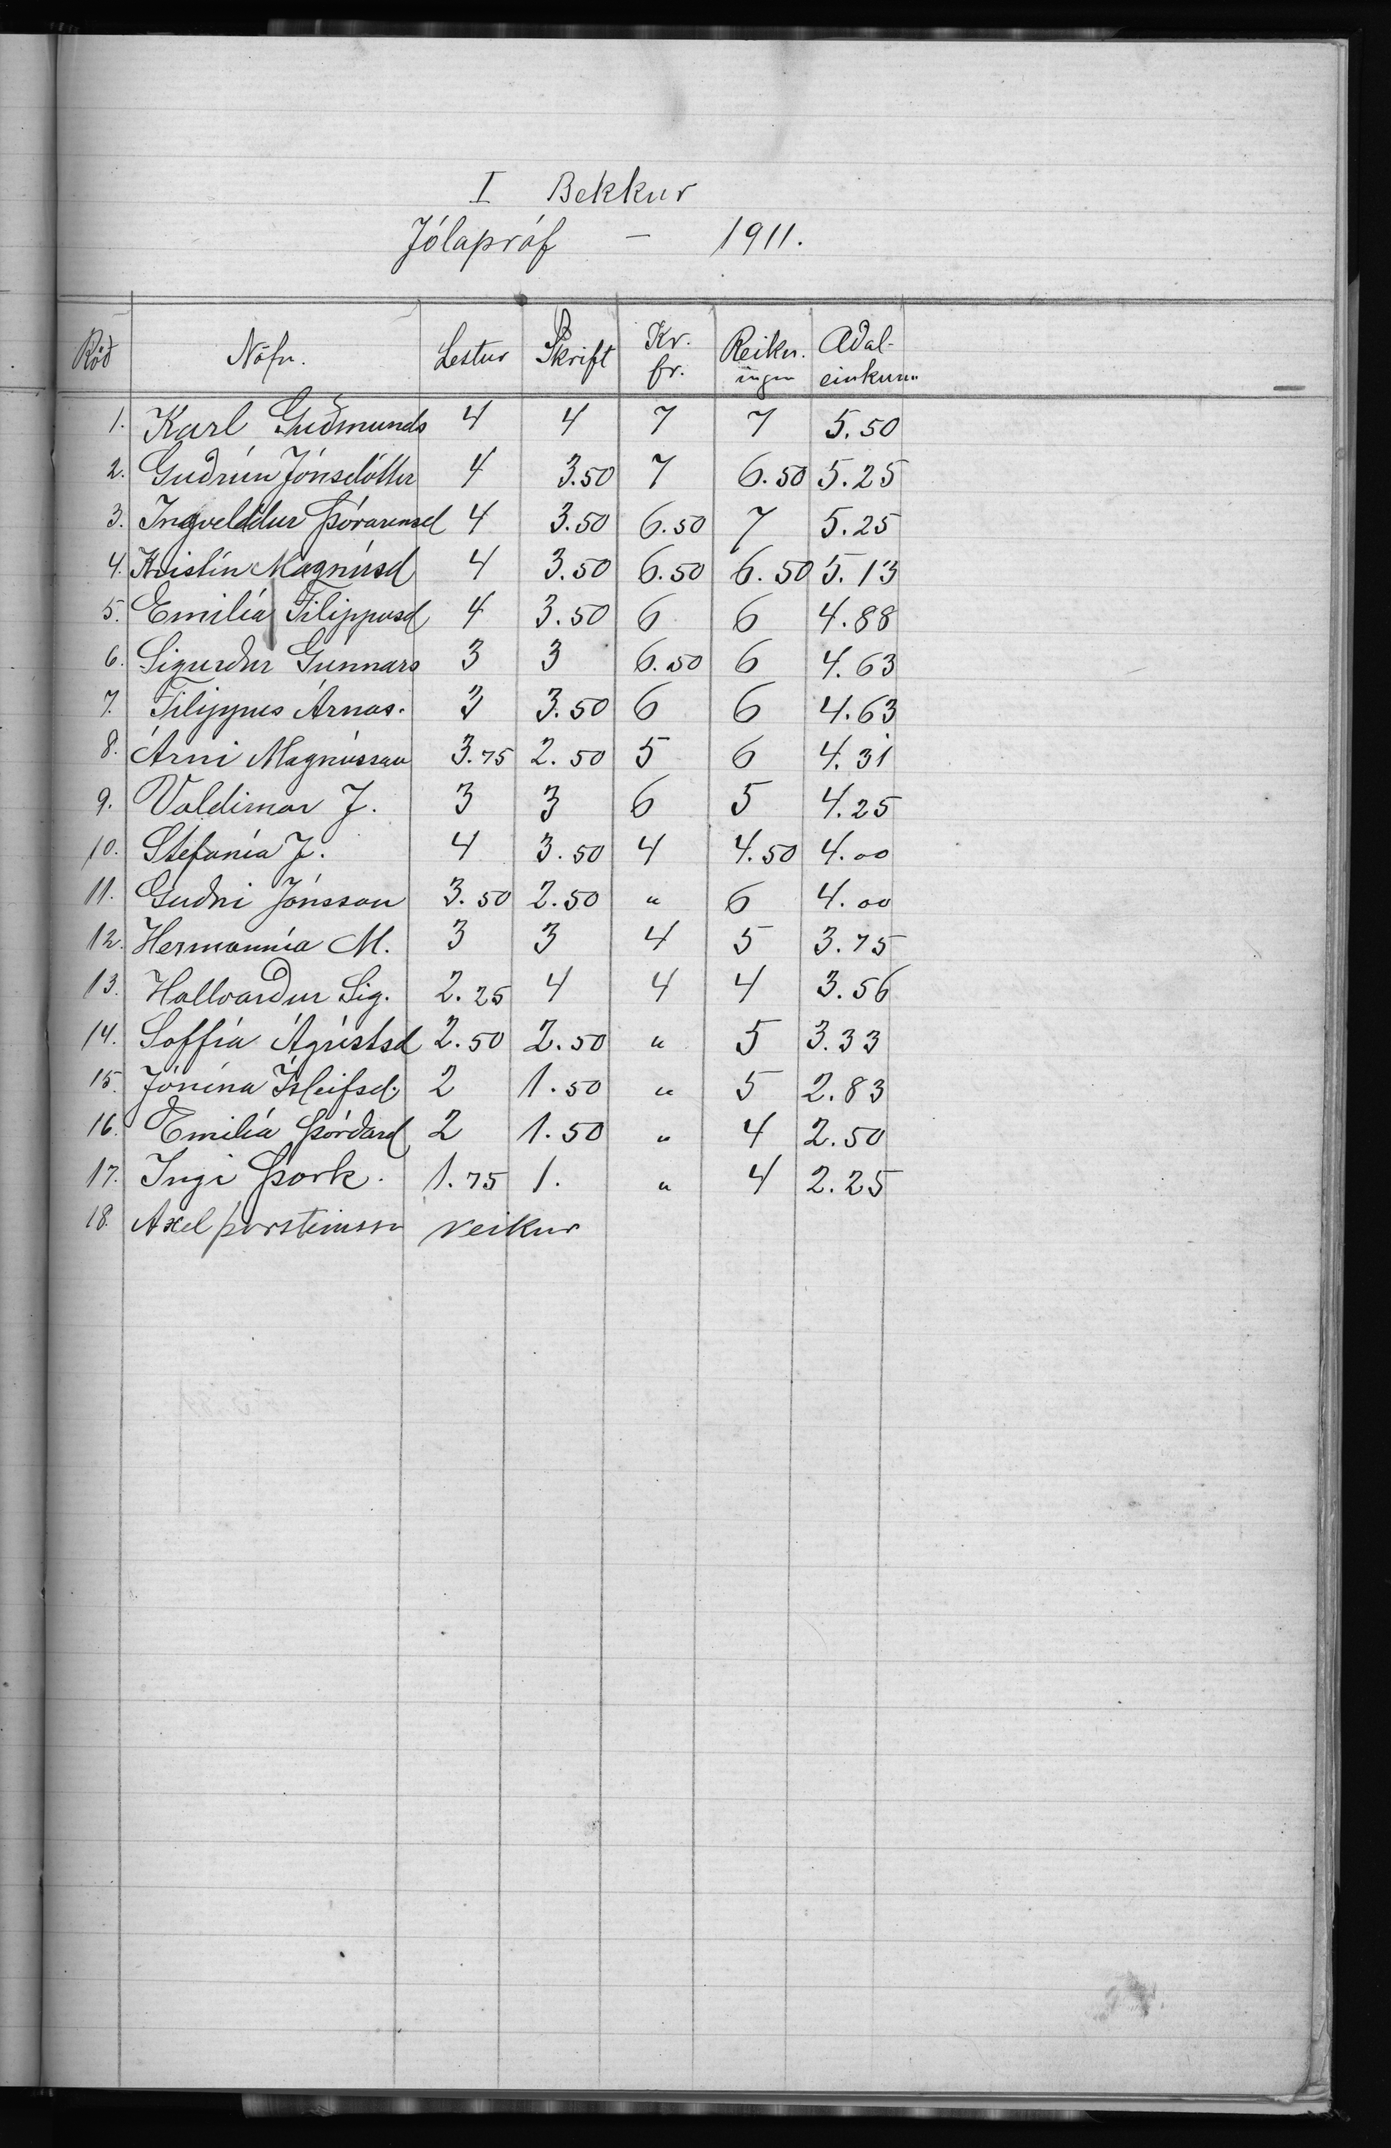 I Bekkur
Jólapróf — 1911.
Röð Nöfn. Lestur Skrift Kr. fr. Reikn. ingur Aðal- einkunn
1. Karl Guðmunds 4 4 7 7 5.50
2. Guðrún Jónsdóttir 4 3.50 7 6.50 5.25
3. Ingvelddur Þórarinsd 4 3.50 6.50 7 5.25
4. Kristín Magnúsd 4 3.50 6.50 6.50 5.13
5. Emilía Filippusd 4 3.50 6 6 4.88
6. Sigurður Gunnars 3 3 6.50 6 4.63
7. Filippus Árnas. 3 3.50 6 6 4.63
8. Árni Magnússon 3.75 2.50 5 6 4.31
9. Valdimar J. 3 3 6 5 4.25
10. Stefanía J. 4 3.50 4 4.50 4.00
11. Guðni Jónsson 3.50 2.50 " 6 4.00
12. Hermannía M. 3 3 4 5 3.75
13. Hallvarður Sig. 2.25 4 4 4 3.56
14. Soffía Ágústsd 2.50 2.50 " 5 3.33
15. Jónína Ísleifsd. 2 1.50 " 5 2.83
16. Emilía Þórðard 2 1.50 " 4 2.50
17. Ingi Þork. 1.75 1. " 4 2.25
18. Axel Þorsteinsson veikur